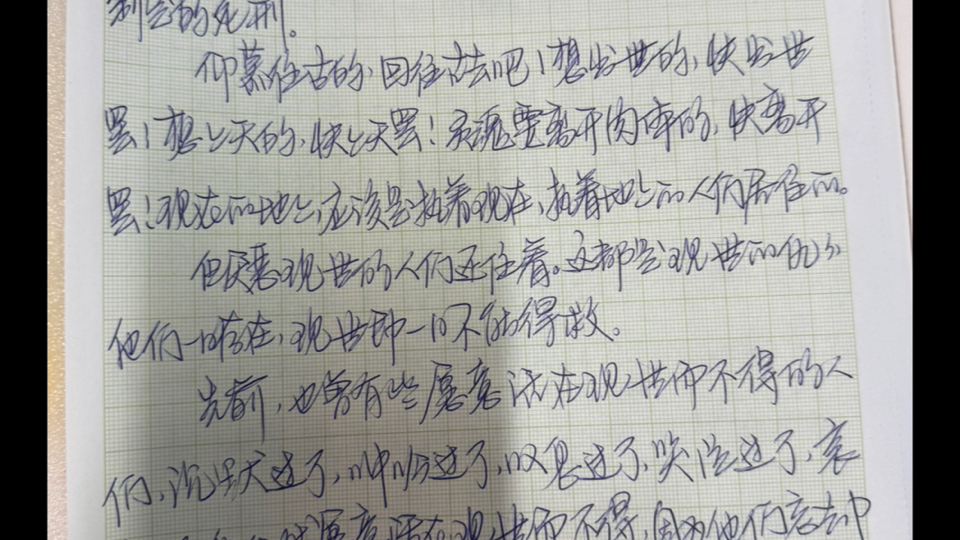 判出的死刑。
仰慕往古的，回往古去吧！想出世的，快出世
罢！想上天的，快上天罢！灵魂要离开肉体的，快离开
罢！现在的地上，应该是执着现在，执着地上的人们居住的。
但厌恶现世的人们还住着。这都是现世的仇
他们一日存在，现世即一日不能得救。
先前，也曾有些愿意活在现世而不得的人
们，沉默过了，呻吟过了，叹息过了，哭泣过了，哀
愿意活在现世而不得，因为他们忘却